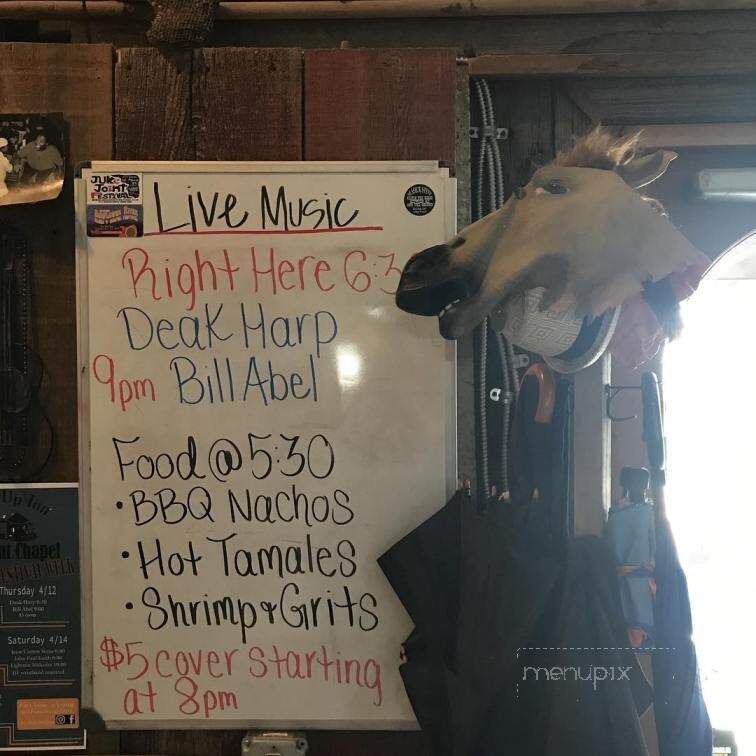 JUKE
JOINT
FESTIVAL
Live Music
Right Here 6:3
Deak Harp
9pm Bill Abel
Food @ 5:30
• BBQ Nachos
• Hot Tamales
• Shrimp & Grits
$5 cover starting
at 8pm
Up Inn
Chapel
Thursday 4/12
Deak Harp 6:30
Bill Abel 9:00
Saturday 4/14
menupix